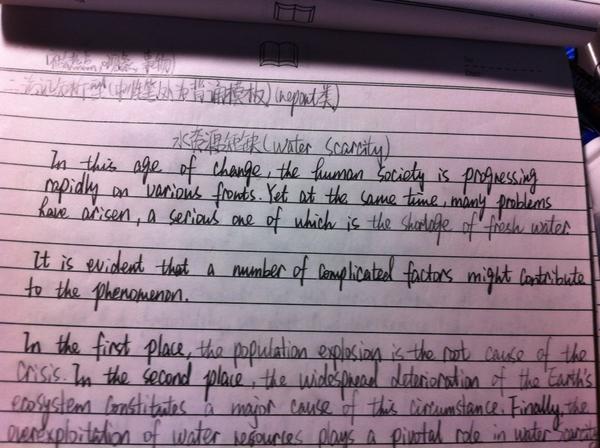 (report类)
水资源短缺(water scarcity)
In this age of change, the human society is progressing
rapidly on various fronts. Yet at the same time, many problems
have arisen, a serious one of which is the shortage of fresh water
It is evident that a number of complicated factors might contribute
to the phenomenon.
In the first place, the population explosion is the root cause of the
crisis. In the second place, the widespread deterioration of the Earth's
ecosystem constitutes a major cause of this circumstance. Finally, the
overexploitation of water resources plays a pivotal role in water scarcity